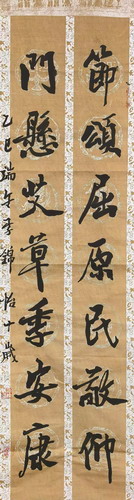 節頌屈原民敬仰
門懸艾草季安康
乙巳瑞午季錦怡十歲